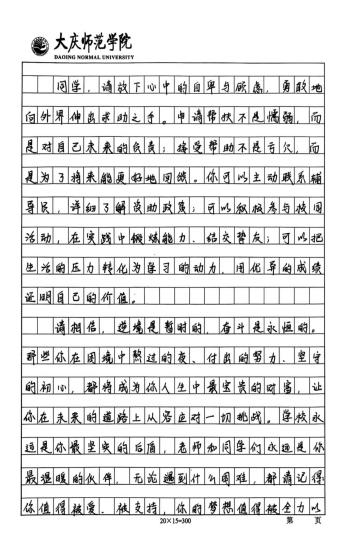 大庆师范学院
DAQING NORMAL UNIVERSITY
同学，请放下心中的自卑与顾虑，勇敢地
向外界伸出求助之手。申请帮扶不是懦弱，而
是对自己未来的负责；接受帮助不是亏欠，而
是为了将来能更好地回馈。你可以主动联系辅
导员，详细了解资助政策；可以积极参与校园
活动，在实践中锻炼能力、结交挚友；可以把
生活的压力转化为学习的动力，用优异的成绩
证明自己的价值。
请相信，逆境是暂时的，奋斗是永恒的。
那些你在困境中熬过的夜、付出的努力、坚守
的初心，都将成为你人生中最宝贵的财富，让
你在未来的道路上从容应对一切挑战。学校永
远是你最坚实的后盾，老师和同学们永远是你
最温暖的伙伴，无论遇到什么困难，都请记得
你值得被爱、被支持，你的梦想值得被全力以
20×15=300
第 页